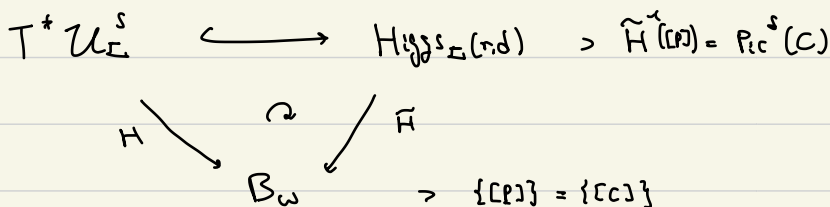 T* U_Σ^s ↪ Higgs_Σ(r,d) ⊃ H̃^{-1}([P]) = Pic^δ(C)
H ↷ H̃
B_ω ⊃ {[P]} = {[C]}